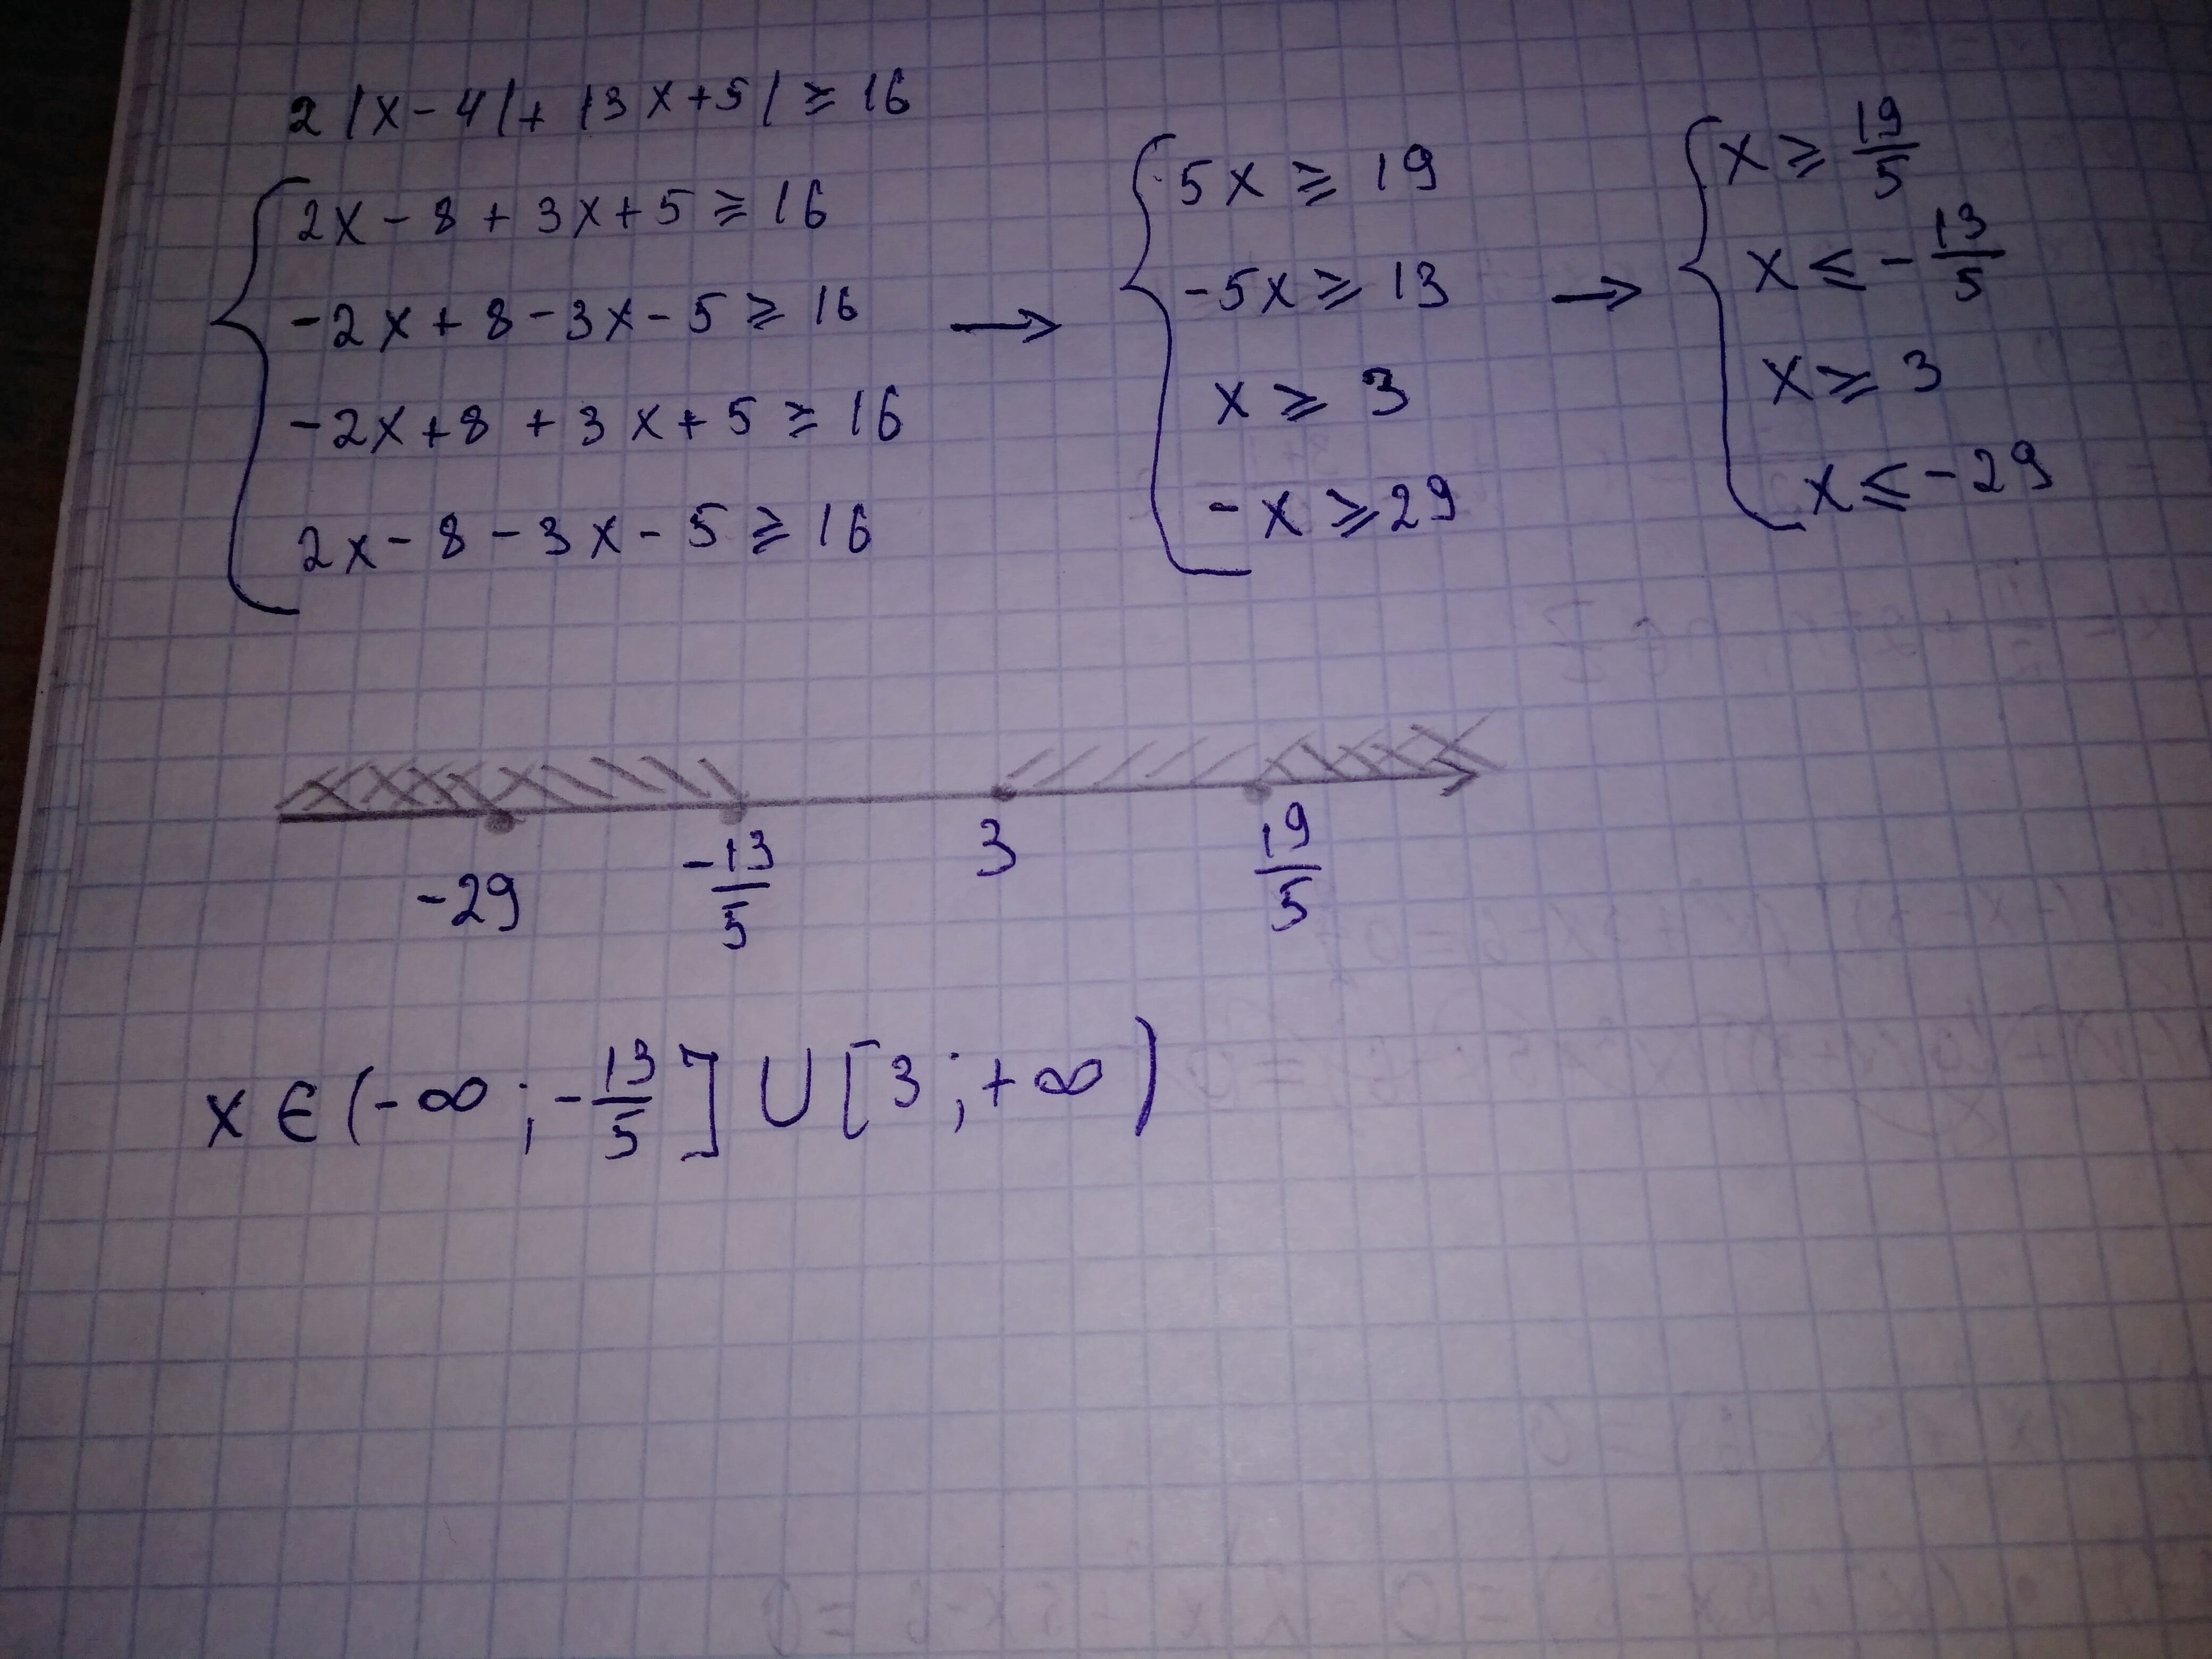 2|x-4|+|3x+5| ≥ 16
2x-8+3x+5 ≥ 16
-2x+8-3x-5 ≥ 16
-2x+8+3x+5 ≥ 16
2x-8-3x-5 ≥ 16
→
5x ≥ 19
-5x ≥ 13
x ≥ 3
-x ≥ 29
→
x ≥ 19/5
x ≤ -13/5
x ≥ 3
x ≤ -29
-29 -13/5 3 19/5
x ∈ (-∞; -13/5] ∪ [3; +∞)